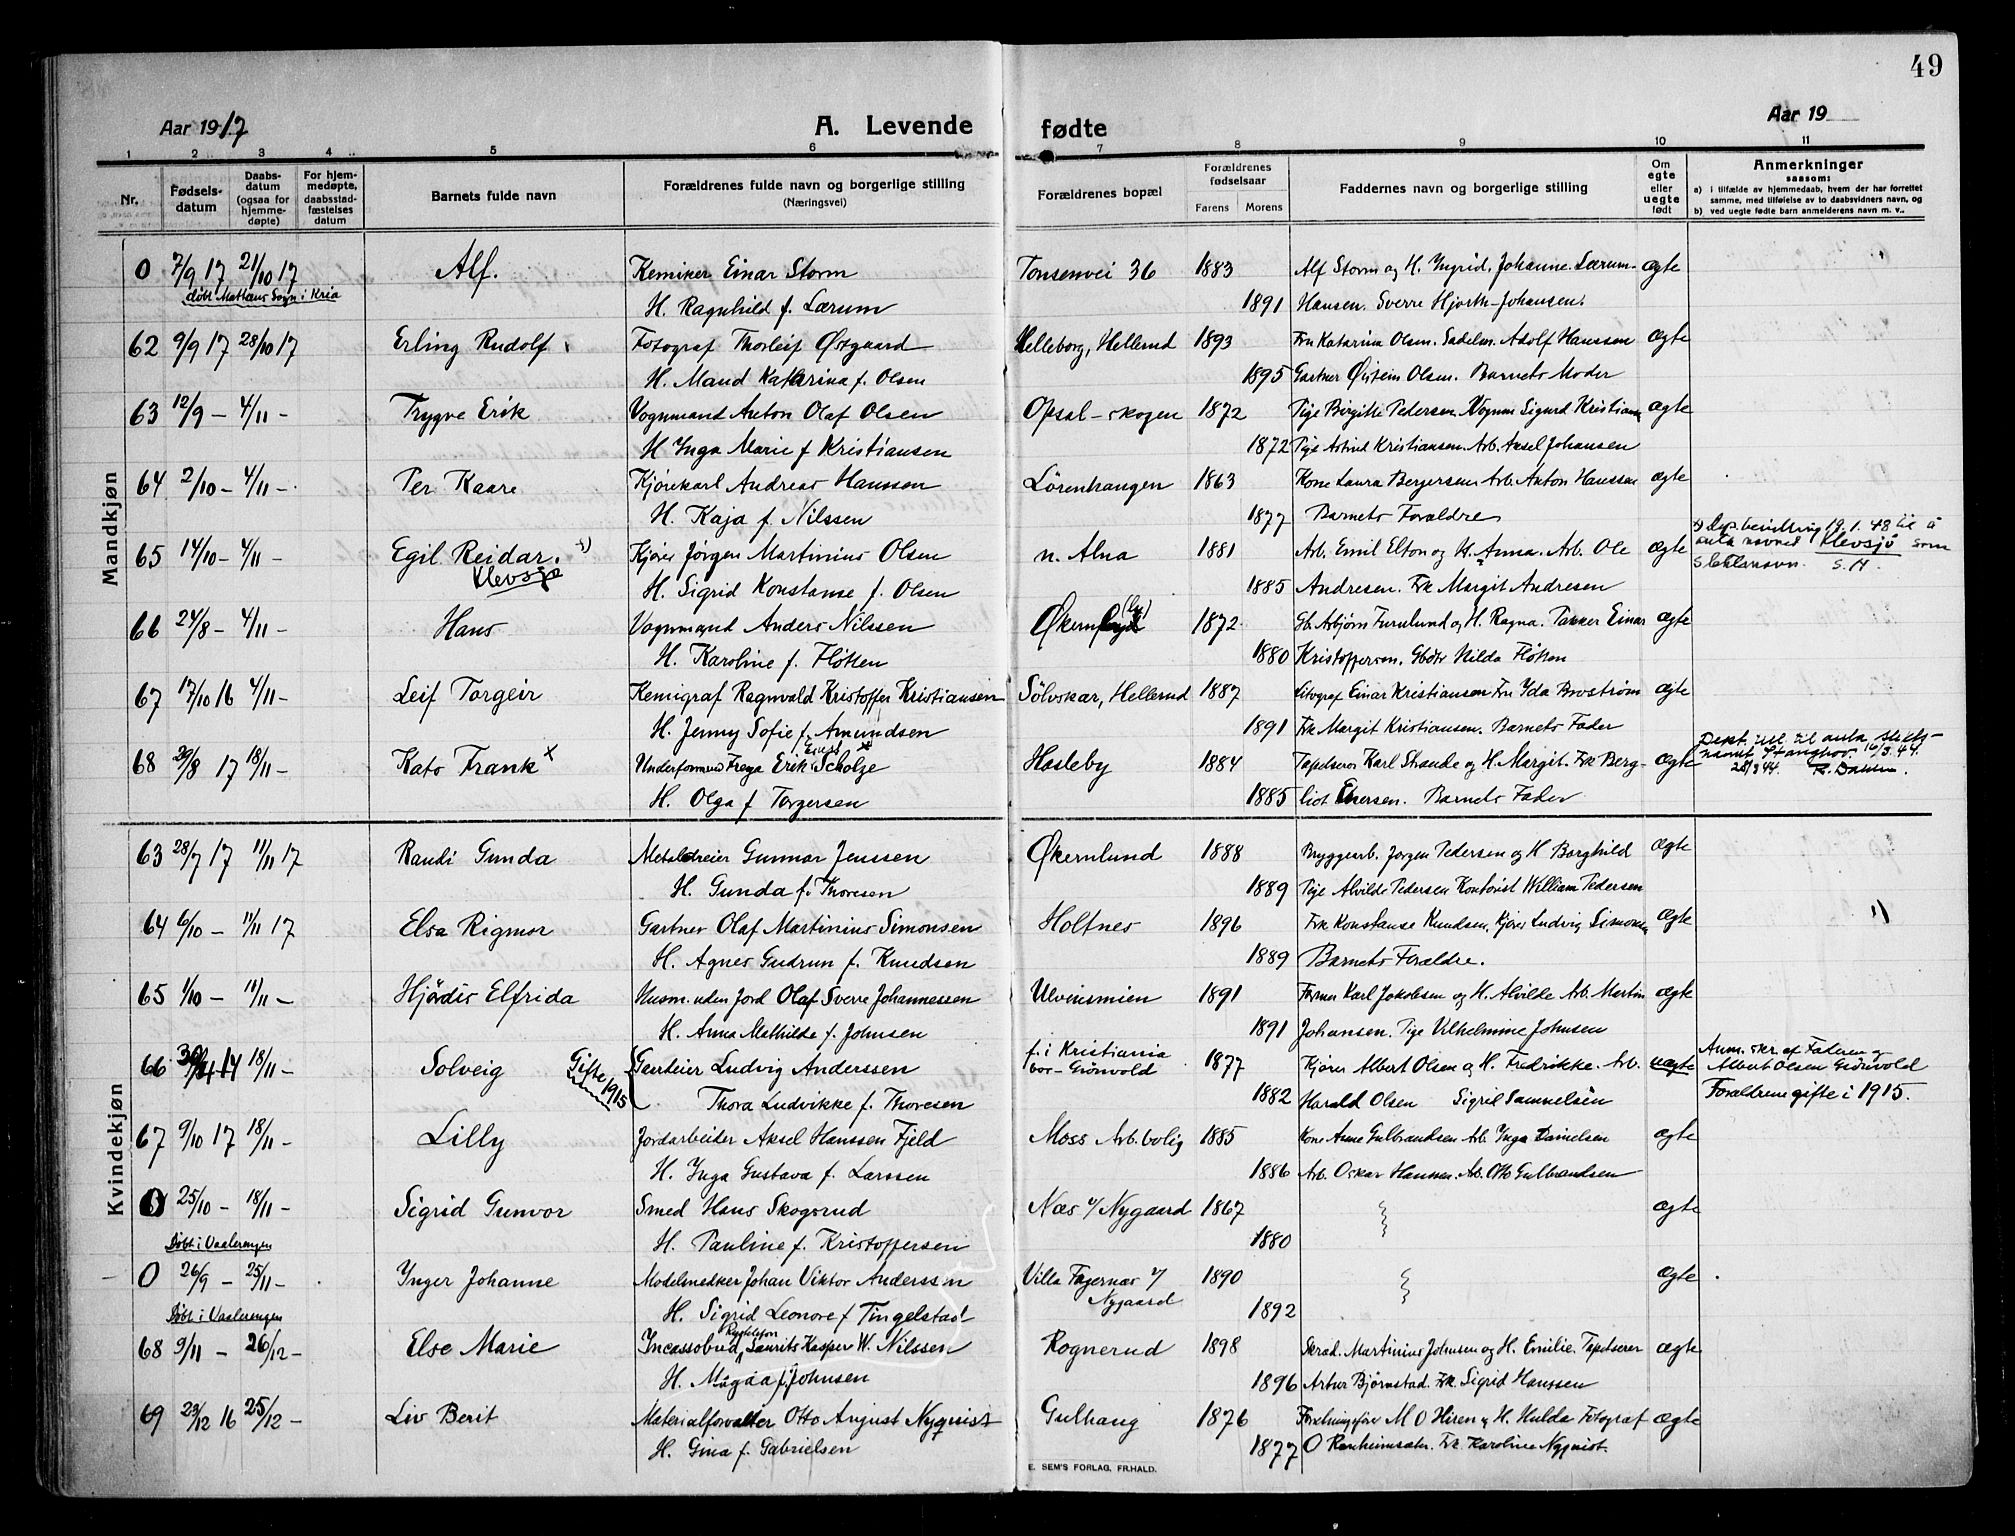 49
Aar 1917 A. Levende fødte Aar 19
1 2 3 4 5 6 7 8 9 10 11
Nr. Fødsels-datum Daabs-datum (ogsaa for hjemme-døpte) For hjem-medøpte, daabsstad-fæstelses datum Barnets fulde navn Forældrenes fulde navn og borgerlige stilling (Næringsvei) Forældrenes bopæl Forældrenes fødselsaar Farens Morens Faddernes navn og borgerlige stilling Om egte eller uegte født Anmerkninger saasom: a) i tilfælde av hjemmedaab, hvem der har forrettet samme, med tilføielse av to daabsvidners navn, og b) ved uegte fødte barn anmelderens navn m. v..
Mandkjøn
0 7/9 17 21/10 17 Alf. Kemiker Einar Storm Tonsenvei 36 1883 Alf Storm og H. Ingrid. Johanne Lærum- ægte
døbt Mattæus Sogn i Kria H. Ragnhild f. Lærum 1891 Hansen. Sverre Hjorth-Johansen.
62 9/9 17 28/10 17 Erling Rudolf Fotograf Thorleif Østgaard Helleborg, Hellerud 1893 Fru Katarina Olsen. Sadelm. Adolf Hanssen ægte
H. Maud Katharina f. Olsen 1895 Gartner Øistein Olsen. Barnets Moder
63 12/9 – 4/11 – Trygve Erik Vognmand Anton Olaf Olsen Opsal-skogen 1872 Pige Birgitte Pedersen. Vognm Sigurd Kristians ægte
H Inga Marie f Kristiansen 1872 Pige Astrid Kristiansen. Arb. Aksel Johansen
64 2/10 – 4/11 – Per Kaare Kjørekarl Andreas Hanssen Lørenhaugen 1863 Kone Laura Bergersen Arb. Anton Hanssen ægte
H. Kaja f. Nilssen 1877 Barnets Forældre
65 14/10 – 4/11 – Egil Reidar. x) Kjører Jørgen Martinius Olsen n. Alna 1881 Arb. Emil Elton og H. Anna. Arb. Ole ægte x) bevilling 19.1.48 til å anta navnet Klevsjø som slektsnavn. S.H.
Klevsjø H. Sigrid Konstanse f. Olsen 1885 Andresen. Frk Margit Andresen
66 24/8 – 4/11 – Hans Vognmand Anders Nilssen Økern (by) 1872 Gb. Asbjørn Furulund og H. Ragna. Pakker Einar ægte
H. Karoline f. Fløtten 1880 Kristoffersen. Gbdtr Hilda Fløtten
67 17/10 16 4/11 – Leif Torgeir Kemigraf Ragnvald Kristoffer Kristiansen Sølvskar, Hellerud 1887 Litograf Einar Kristiansen Fru Yda Brostrøm ægte
H. Jenny Sofie f. Amundsen 1891 Frk Margit Kristiansen. Barnets Fader
68 29/8 17 18/11 – Kato Frank x Underformand Freya Erik Ernst Scholze x Hasleby 1884 Tapetserer Karl Strande og H. Margit. Frk Berg- ægte Dept. till. til anta slekts-navnet Stanghov 16/3.44. 28/3 44 R. Dahlen.
H. Olga f Torgersen 1885 liot Enersen. Barnets Fader
Kvindekjøn
63 28/7 17 11/11 17 Randi Gunda Metaldreier Gunnar Jenssen Økernlund 1888 Bryggearb. Jørgen Pedersen og H Borghild ægte
H. Gunda f. Thoresen 1889 Pige Alvilde Pedersen Kontorist William Pedersen
64 6/10 – 11/11 17 Elsa Rigmor Gartner Olaf Martinius Simonsen Holtnes 1896 Frk Konstanse Knudsen. Kjører Ludvig Simonsen ægte
H. Agnes Gudrun f. Knudsen 1889 Barnets Forældre.
65 1/10 – 11/11 – Hjørdis Elfrida Husm. uden Jord Olaf Sverre Johannessen Ulvensmien 1891 Former Karl Jakobsen og H. Alvilde Arb. Martin ægte
H. Anna Mathilde f. Johnsen 1891 Johansen. Pige Vilhelmine Johnsen
66 14 18/11 – Solveig Gifte 1915 Garveier Ludvig Anderssen f. i Kristiania bor – Grønvold 1877 Kjører Albert Olsen og H. Fredrikke. Arb. uægte Anm. skr. af Faderen og Albert Olsen Grønvold
Thora Ludvikke f. Thoresen 1882 Harald Olsen Sigrid Samuelsen Forældrene gifte i 1915.
67 9/10 17 18/11 – Lilly Jordarbeider Aksel Hanssen Fjeld Moss Arb. bolig 1885 Kone Anne Gulbrandsen Arb Inga Danielsen ægte
H. Inga Gustava f. Larssen 1886 Arb. Oskar Hanssen. Arb. Otto Gulbrandsen
0 25/10 – 18/11 – Sigrid Gunvor Smed Hans Skogsrud Næs v/ Nygaard 1867 ægte
Døbt i Vaalerengen H. Pauline f. Kristoffersen 1880
0 26/9 – 25/11 – Inger Johanne Modelsnedker Johan Viktor Anderssen Villa Fagernæs v/ Nygaard 1890 ægte
Døbt i Vaalerengen H. Sigrid Leonore f Tingelstad 1892
68 9/11 – 26/12 – Else Marie Incassobud Laurits Kasper W. Nilssen Rognerud 1898 Skræd. Martinius Johnsen og H. Emilie. Tapetserer ægte
H. Magda f. Johnsen 1896 Artur Bjørnstad. Frk. Sigrid Hanssen
69 23/12 16 25/12 – Liv Berit Materialforvalter Otto August Nyqvist Gulhaug 1876 Forretningsfører M O Hiren og H. Hulda Fotograf ægte
H. Gina f. Gabrielsen 1877 O Ranheimsæter. Frk. Karoline Nyqvist.
E. SEM'S FORLAG. FR.HALD.